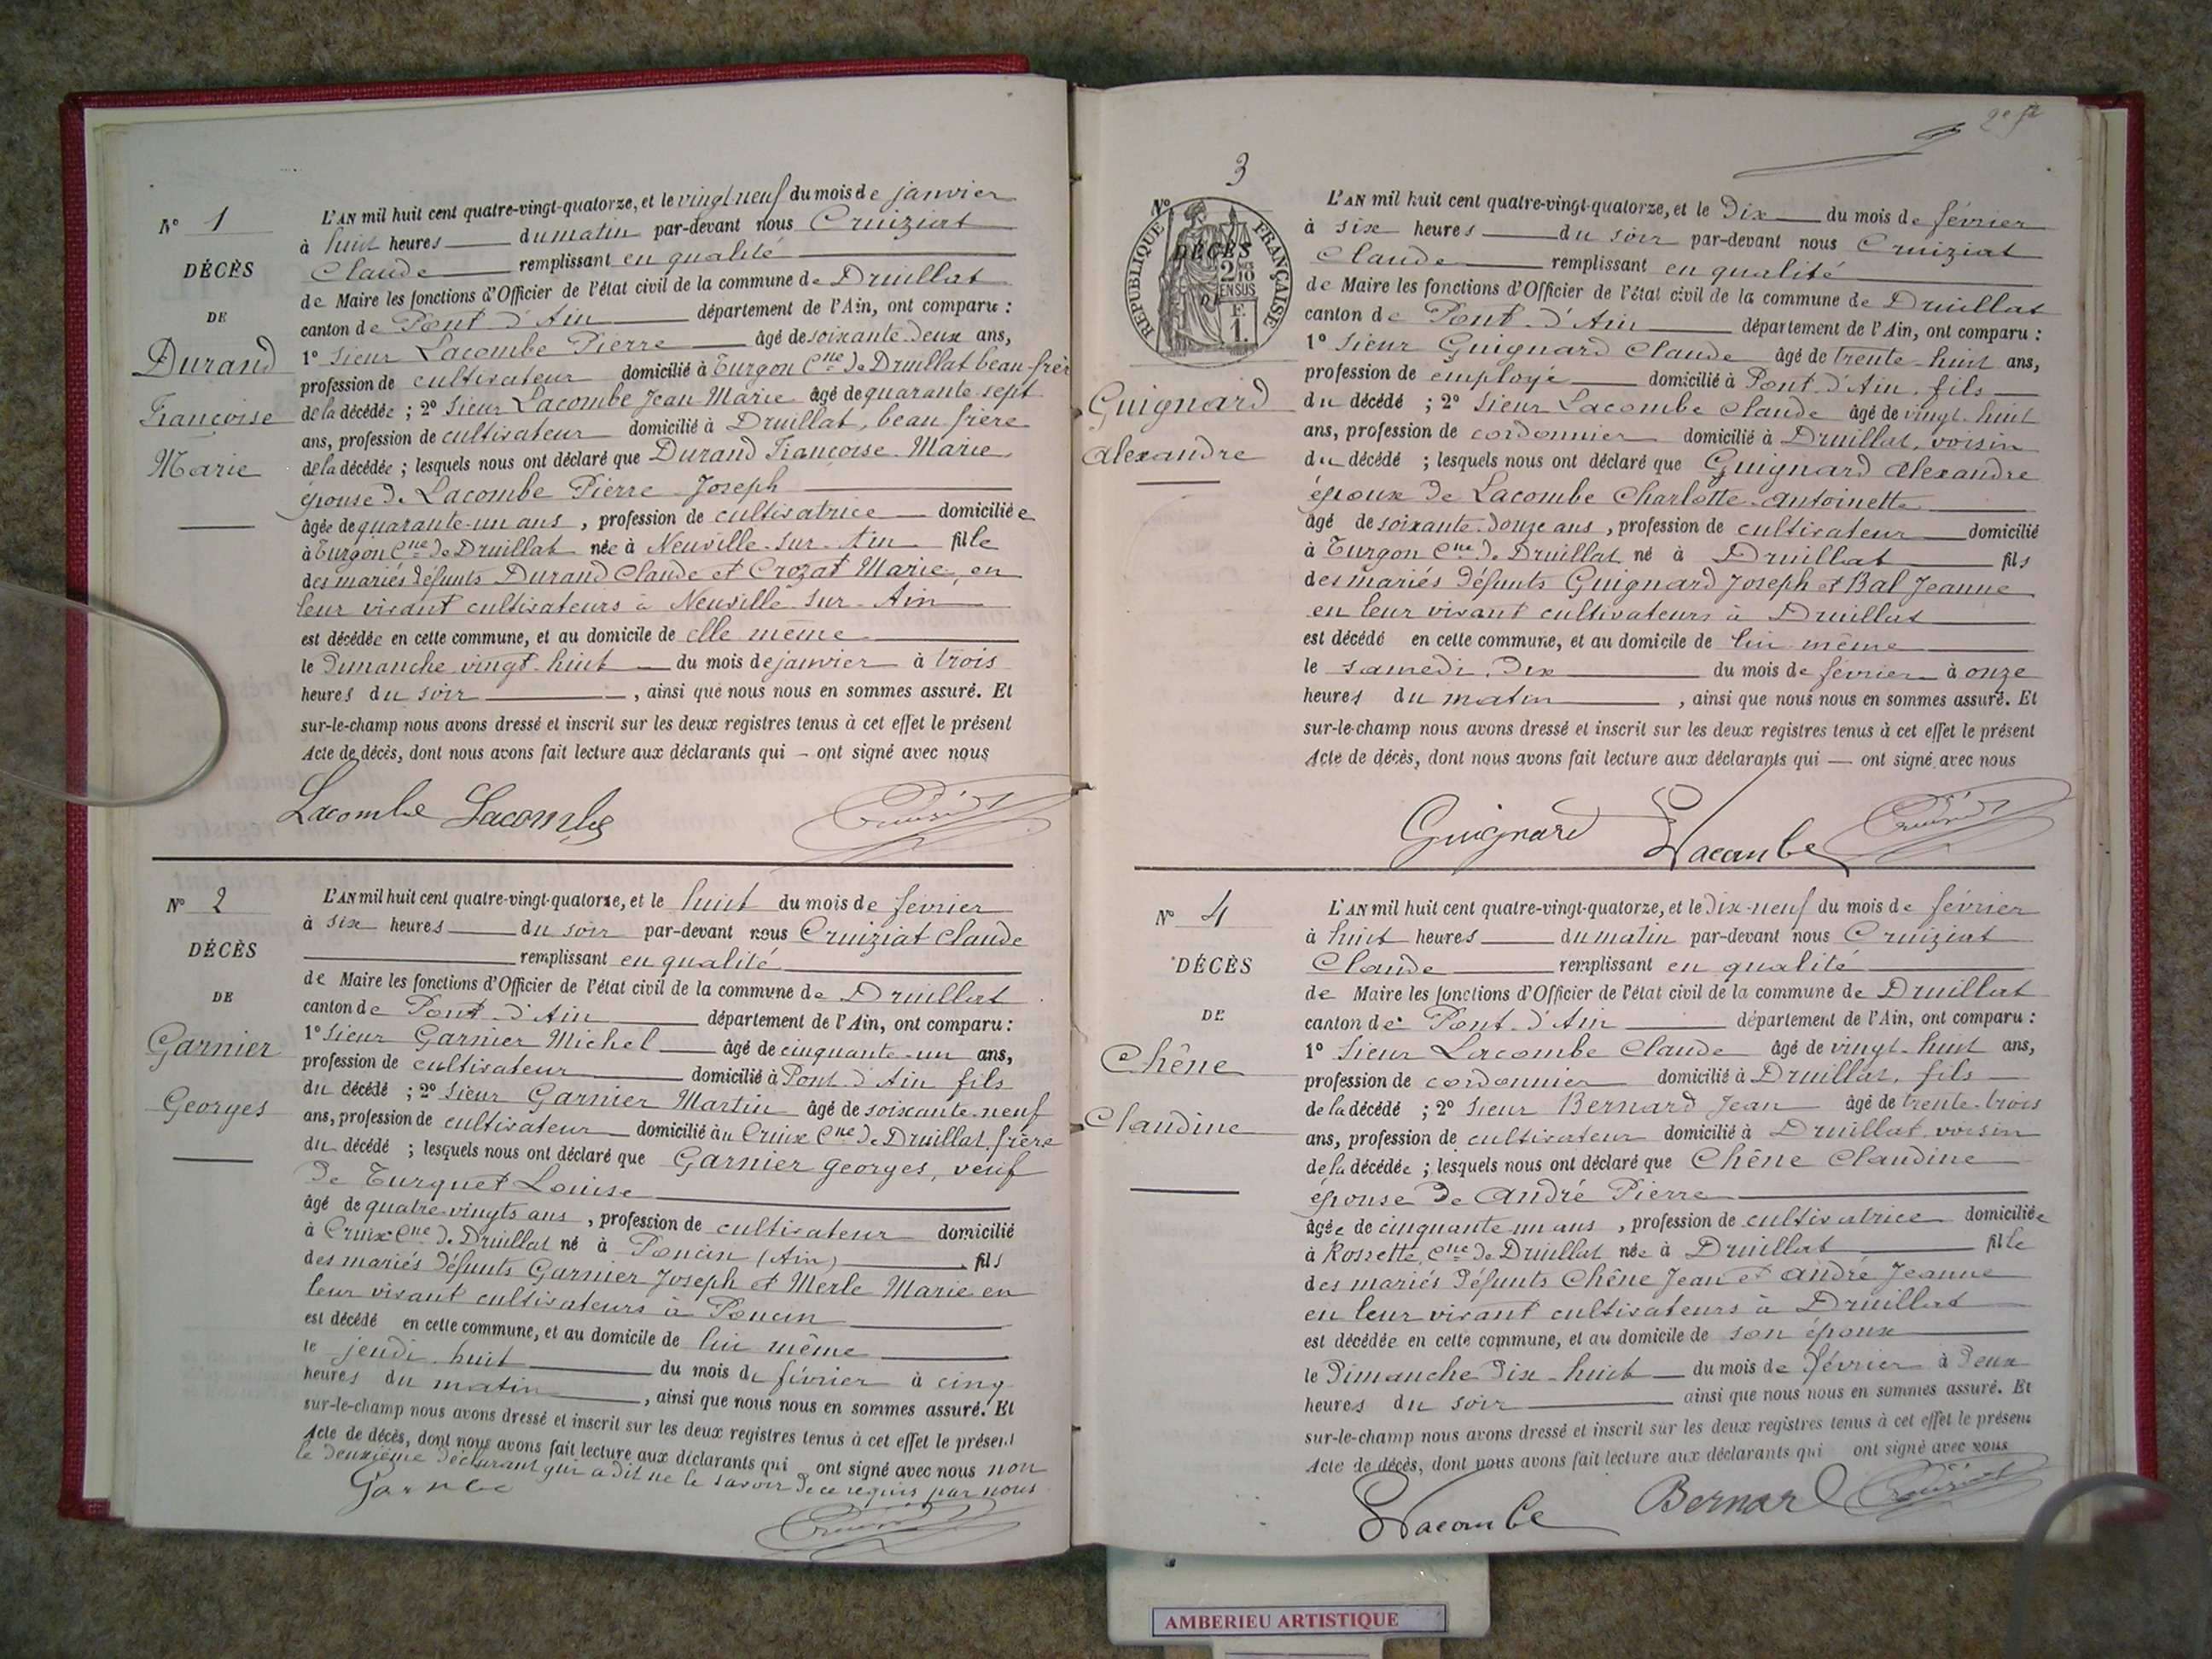 N° 1
DÉCÈS
DE
Durand
Françoise
Marie
L'AN mil huit cent quatre-vingt-quatorze, et le vingt-neuf du mois de janvier
à huit heures du matin par-devant nous Cruiziat
Claude remplissant en qualité
de Maire les fonctions d'Officier de l'état civil de la commune de Druillat
canton de Pont-d'Ain département de l'Ain, ont comparu :
1° Sieur Lacombe Pierre âgé de soixante-deux ans,
profession de cultivateur domicilié à Turgon Cne de Druillat beau-frère
de la décédée ; 2° Sieur Lacombe Jean Marie âgé de quarante-sept
ans, profession de cultivateur domicilié à Druillat, beau frère
de la décédée ; lesquels nous ont déclaré que Durand Françoise Marie
épouse de Lacombe Pierre-Joseph
âgée de quarante-un ans, profession de cultivatrice domiciliée
à Turgon Cne de Druillat née à Neuville-sur-Ain fille
des mariés défunts Durand Claude et Crozat Marie, en
leur vivant cultivateurs à Neuville-sur-Ain
est décédée en cette commune, et au domicile de elle même
le dimanche vingt-huit du mois de janvier à trois
heures du soir, ainsi que nous nous en sommes assuré. Et
sur-le-champ nous avons dressé et inscrit sur les deux registres tenus à cet effet le présent
Acte de décès, dont nous avons fait lecture aux déclarants qui — ont signé avec nous
Lacombe Lacombe Cruiziat
N° 2
DÉCÈS
DE
Garnier
Georges
L'AN mil huit cent quatre-vingt-quatorze, et le huit du mois de février
à six heures du soir par-devant nous Cruiziat Claude
remplissant en qualité
de Maire les fonctions d'Officier de l'état civil de la commune de Druillat
canton de Pont-d'Ain département de l'Ain, ont comparu :
1° Sieur Garnier Michel âgé de cinquante-un ans,
profession de cultivateur domicilié à Pont-d'Ain fils
du décédé ; 2° Sieur Garnier Martin âgé de soixante-neuf
ans, profession de cultivateur domicilié au Cruix Cne de Druillat, frère
du décédé ; lesquels nous ont déclaré que Garnier Georges, veuf
de Turquet Louise
âgé de quatre-vingts ans, profession de cultivateur domicilié
à Cruix Cne de Druillat né à Poncin (Ain) fils
des mariés défunts Garnier Joseph et Merle Marie en
leur vivant cultivateurs à Poncin
est décédé en cette commune, et au domicile de lui même
le jeudi huit du mois de février à cinq
heures du matin, ainsi que nous nous en sommes assuré. Et
sur-le-champ nous avons dressé et inscrit sur les deux registres tenus à cet effet le présent
Acte de décès, dont nous avons fait lecture aux déclarants qui ont signé avec nous non
le deuxième déclarant qui a dit ne le savoir de ce requis par nous
Garnie Cruiziat
2e ft
3
N°
RÉPUBLIQUE FRANÇAISE
DÉCÈS
2/10
EN SUS
DE
F.
1.
Guignard
Alexandre
L'AN mil huit cent quatre-vingt-quatorze, et le dix du mois de février
à six heures du soir par-devant nous Cruiziat
Claude remplissant en qualité
de Maire les fonctions d'Officier de l'état civil de la commune de Druillat
canton de Pont-d'Ain département de l'Ain, ont comparu :
1° Sieur Guignard Claude âgé de trente-huit ans,
profession de employé domicilié à Pont-d'Ain, fils
du décédé ; 2° Sieur Lacombe Claude âgé de vingt-huit
ans, profession de cordonnier domicilié à Druillat, voisin
du décédé ; lesquels nous ont déclaré que Guignard Alexandre
époux de Lacombe Charlotte-Antoinette
âgé de soixante-douze ans, profession de cultivateur domicilié
à Turgon Cne de Druillat né à Druillat fils
des mariés défunts Guignard Joseph et Bal Jeanne
en leur vivant cultivateurs à Druillat
est décédé en cette commune, et au domicile de lui même
le samedi, dix du mois de février à onze
heures du matin, ainsi que nous nous en sommes assuré. Et
sur-le-champ nous avons dressé et inscrit sur les deux registres tenus à cet effet le présent
Acte de décès, dont nous avons fait lecture aux déclarants qui — ont signé avec nous
Guignard Lacombe Cruiziat
N° 4
DÉCÈS
DE
Chêne
Claudine
L'AN mil huit cent quatre-vingt-quatorze, et le dix-neuf du mois de février
à huit heures du matin par-devant nous Cruiziat
Claude remplissant en qualité
de Maire les fonctions d'Officier de l'état civil de la commune de Druillat
canton de Pont-d'Ain département de l'Ain, ont comparu :
1° Sieur Lacombe Claude âgé de vingt-huit ans,
profession de cordonnier domicilié à Druillat, fils
de la décédé ; 2° Sieur Bernard Jean âgé de trente-trois
ans, profession de cultivateur domicilié à Druillat, voisin
de la décédée ; lesquels nous ont déclaré que Chêne Claudine
épouse de André Pierre
âgée de cinquante un ans, profession de cultivatrice domiciliée
à Rossette, Cne de Druillat née à Druillat fille
des mariés défunts Chêne Jean et André Jeanne
en leur vivant cultivateurs à Druillat
est décédée en cette commune, et au domicile de son époux
le dimanche dix-huit du mois de février à deux
heures du soir ainsi que nous nous en sommes assuré. Et
sur-le-champ nous avons dressé et inscrit sur les deux registres tenus à cet effet le présent
Acte de décès, dont nous avons fait lecture aux déclarants qui ont signé avec nous
Lacombe Bernard Cruiziat
AMBERIEU ARTISTIQUE